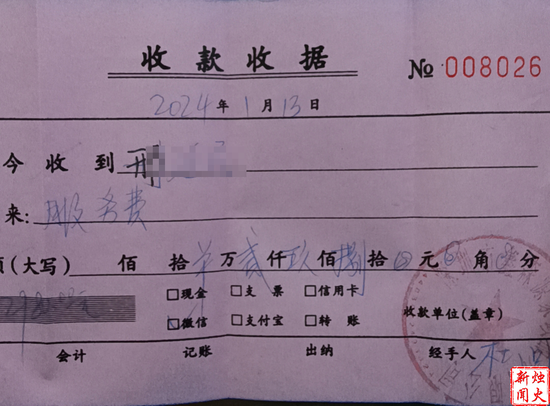 收款收据
№ 008026
2024年1月13日
今收到
来:服务费
(大写) 佰 拾 万贰仟玖佰捌拾 元 角 分
□现金 □支票 □信用卡
□微信 □支付宝 □转账
收款单位(盖章)
会计 记账 出纳 经手人
烛火新闻